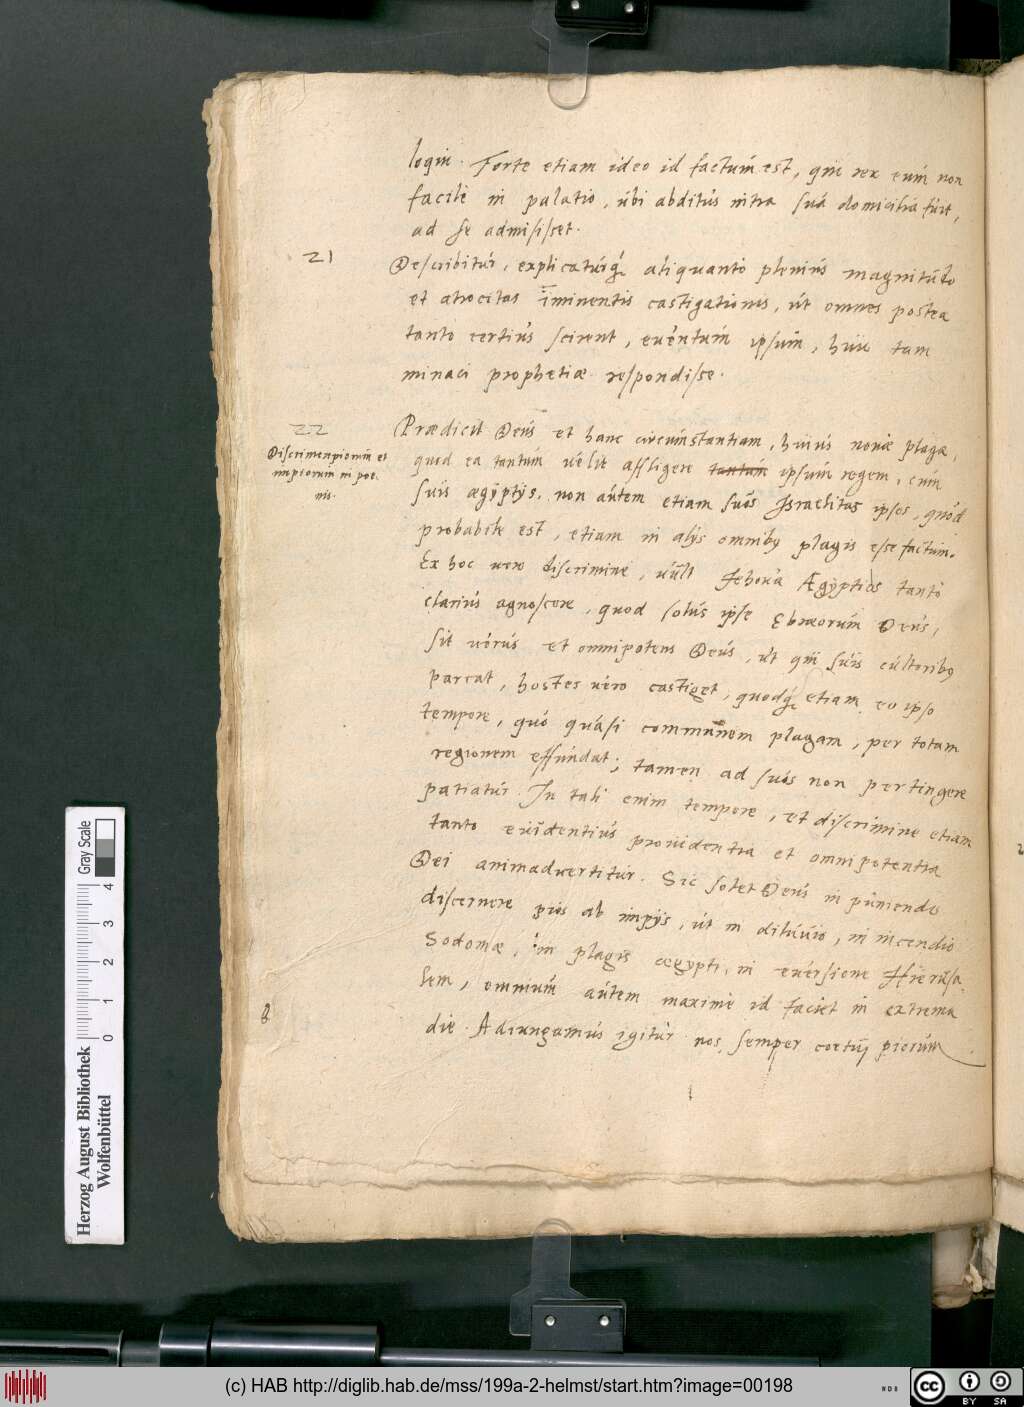 loqui. Forte etiam ideo id factum est, qui rex eum non
facile in palatio, ubi abditus intra sua domicilia fuit,
ad se admisisset.
21
Describitur, explicaturq́ aliquanto plenius magnitudo
et atrocitas iminentis castigationis, ut omnes postea
tanto certius scirent, eventum ipsum, huic tam
minaci prophetiæ respondisse.
22
Discrimen piorum et
impiorum in poe,
nis.
Prædicit Deus et hanc circumstantiam, huius novæ plagæ,
quod ea tantum velit affligere tantum ipsum regem, cum
suis ægyptijs, non autem etiam suos Israelitas ipsos, quod
probabile est, etiam in alijs omnibꝫ plagis esse factum.
Ex hoc vero discrimine, vult Jehova Ægyptios tanto
clarius agnoscere, quod solus ipse Ebræorum Deus,
sit verus et omnipotens Deus, ut qui suis cultoribꝫ
parcat, hostes vero castiget, quodq́ etiam eo ipso
tempore, quo quasi communem plagam, per totam
regionem effundat; tamen ad suos non pertingere
patiatur. In tali enim tempore, et discrimine etiam
tanto evidentius providentia et omnipotentia
Dei animadvertitur. Sic solet Deus in puniendo
discernere pios ab impijs, ut in diluvio, in incendio
Sodomæ, in plagis ægypti, in eversione Hierusa,
lem, omnium autem maxime id faciet in extrema
die. Adiungamus igitur nos semper coetuj piorum
8
Herzog August Bibliothek
Wolfenbüttel
0 1 2 3 4
Gray Scale
(c) HAB http://diglib.hab.de/mss/199a-2-helmst/start.htm?image=00198
cc BY SA